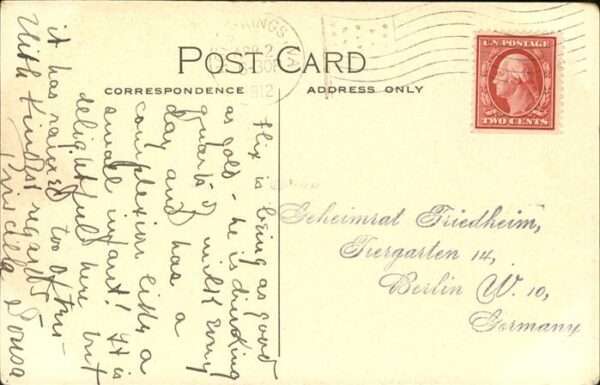 POST CARD
CORRESPONDENCE
ADDRESS ONLY
SPRINGS, VA.
APR 2
1912
U.S. POSTAGE
TWO CENTS
Flix is being as good
as gold - he is drinking
quarts of milk every
day and has a
complexion like a
small infant! It is
delightful here but
it has rained too often -
With kindest regards
Priscilla Sousa
Geheimrat Friedheim,
Tiergarten 14,
Berlin W. 10,
Germany